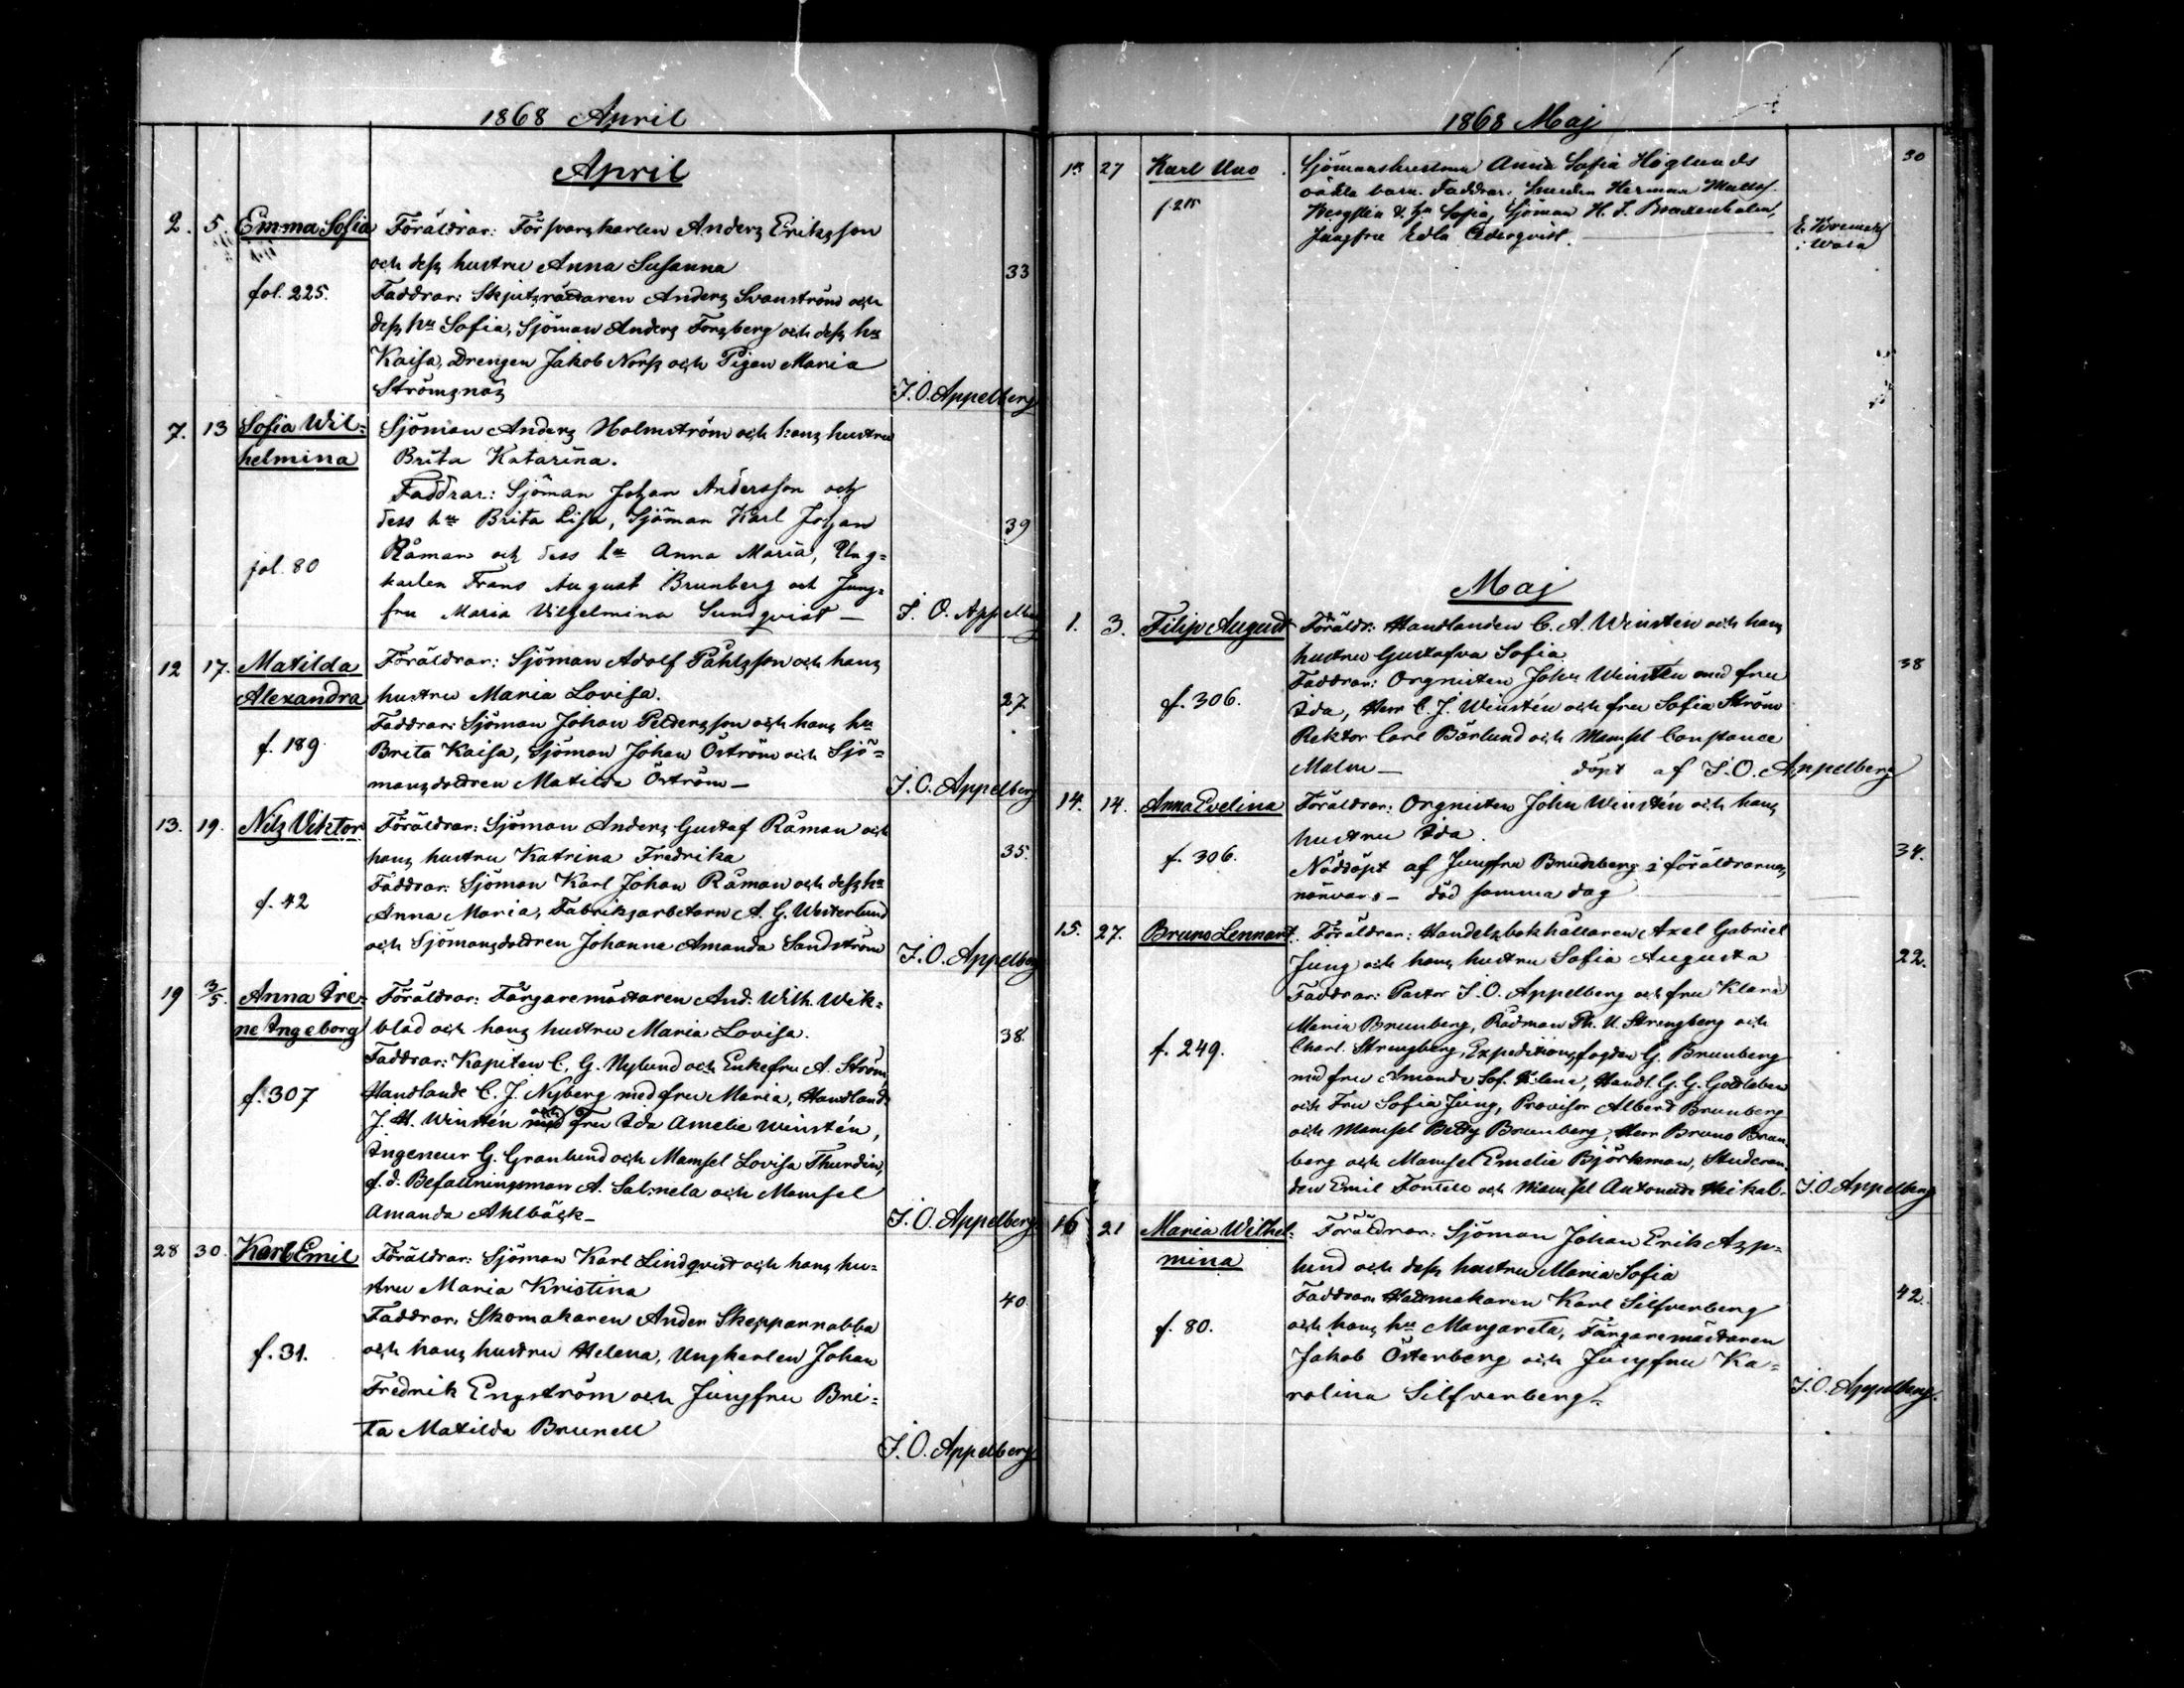 1868 April
April
2. 5. Emma Sofia Föräldrar: Försvarskarlen Anders Eriksson
och dess hustru Anna Susanna 33
fol. 225. Faddrar: Skjutsrättaren Anders Svanström och
dess hu Sofia, Sjöman Anders Forsberg och dess hu
Kaisa, Drengen Jakob Norss och Pigan Maria
Strömsnäs J. O. Appelberg
7. 13 Sofia Wil= Sjöman Anders Holmström och hans hustru
helmina Brita Katarina.
Faddrar: Sjöman Johan Andersson och
dess hu Brita Lisa, Sjöman Karl Johan 39
Råman och dess hu Anna Maria, Ung=
fol. 80 karlen Frans August Brunberg och Jung=
fru Maria Vilhelmina Sundqvist — J. O. Appelberg
12 17. Matilda Föräldrar: Sjöman Adolf Påhlsson och hans
Alexandra hustru Maria Lovisa. 27
Faddrar: Sjöman Johan Pettersson och hans hu
f. 189. Brita Kaisa, Sjöman Johan Öström och Sjö=
mansdottren Matilda Öström — J. O. Appelberg
13. 19. Nils Viktor Föräldrar: Sjöman Anders Gustaf Råman och
hans hustru Katrina Fredrika 35.
Faddrar: Sjöman Karl Johan Råman och dess hu
f. 42 Anna Maria, Fabriksarbetarn A. G. Westerlund
och Sjömansdottren Johanna Amanda Sandström J. O. Appelberg
19 3/5. Anna Ire= Föräldrar: Färgaremästaren And. Wilh. Wik=
ne Ingeborg blad och hans hustru Maria Lovisa. 38.
Faddrar: Kapiten C. G. Nylund och Enkefru A. Ström,
f. 307 Handlande C. J. Nyberg med fru Maria, Handland.
J. H. Winstén och Fru Ida Amelie Winstén,
Ingeneur G. Granlund och Mamsel Lovisa Thurdin,
f. d. Befallningsman A. Salmela och Mamsel
Amanda Ahlbäck — J. O. Appelberg
28 30. Karl Emil Föräldrar: Sjöman Karl Lindqvist och hans hu=
stru Maria Kristina 40.
Faddrar. Skomakaren Anders Skepparnabba
f. 31. och hans hustru Helena, Ungkarlen Johan
Fredrik Engström och Jungfru Bri=
ta Matilda Brunell
J. O. Appelberg
1868 Maj
27 Karl Uno Sjömanshustrun Anna Sofia Höglunds 30
oäkta barn. Faddrar: Smeden Herman
f. 215 Bergsten o. hu Sofia, Sjöman H. J. Braxenholm,
Jungfru Edla Cederqvist. i Wasa
Maj
1. 3. Filip August Föräldr: Handlanden C. A. Winstén och hans
hustru Gustafva Sofia 38
Faddrar: Orgnisten John Winstén med fru
f. 306. Ida, Herr C. J. Winstén och fru Sofia Ström
Rektor Carl Bärlund och Mamsel Constance
Malm — döpt af J. O. Appelberg
14. 14. Anna Evelina Föräldrar: Orgnisten John Winstén och hans
hustru Ida.
f. 306. Nöddöpt af Jungfru Brunberg i föräldrarnas 34.
närvaro — död samma dag
15. 27. Bruno Lennart. Föräldrar: Handelsbokhållaren Axel Gabriel
Jung och hans hustru Sofia Augusta 22.
Faddrar: Pastor J. O. Appelberg och fru Klara
Maria Brunberg, Rådman Th. U. Strengberg och
f. 249. Charl. Strengberg, Expeditionsfogden G. Brunberg
med fru Amanda Sof. Helena, Handl. G. G. Gottleben
och Fru Sofia Jung, Provisor Albert Brunberg
och Mamsel Betty Brunberg, Herr Bruno Brun=
berg och Mamsel Emelie Björkman, Studeran=
den Emil Fontell och Mamsel Antonette Mikal. J. O. Appelberg
16 21 Maria Wilhel= Föräldrar: Sjöman Johan Erik Asp=
mina lund och dess hustru Maria Sofia
Faddrar. Hattmakaren Karl Silfverberg 42.
f. 80. och hans hu Margareta, Färgaremästaren
Jakob Österberg och Jungfru Ka=
rolina Silfverberg. J. O. Appelberg.